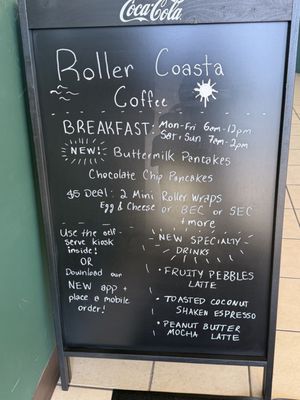 Coca-Cola
Roller Coasta
Coffee
BREAKFAST: Mon-Fri 6am-12pm
Sat, Sun 7am-2pm
NEW! Buttermilk Pancakes
Chocolate Chip Pancakes
$5 Deal: 2 Mini Roller Wraps
Egg & Cheese or BEC or SEC
+ more
Use the self
serve kiosk
inside!
OR
Download our
NEW app +
place a mobile
order!
NEW SPECIALTY
DRINKS
• FRUITY PEBBLES
LATTE
• TOASTED COCONUT
SHAKEN ESPRESSO
• PEANUT BUTTER
MOCHA LATTE